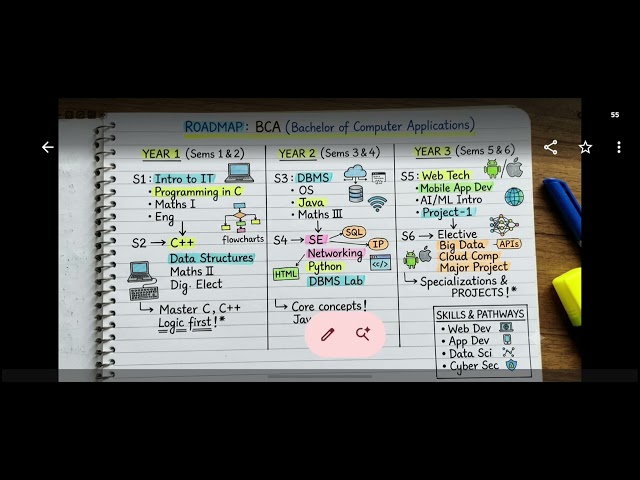 55
ROADMAP: BCA (Bachelor of Computer Applications)
YEAR 1 (Sems 1 & 2)
S1: Intro to IT
• Programming in C
• Maths I
• Eng
flowcharts
S2 → C++
Data Structures
Maths II
Dig. Elect
↳ Master C, C++
Logic first! *
YEAR 2 (Sems 3 & 4)
S3: DBMS
• OS
• Java
• Maths III
S4 → SE
SQL
IP
Networking
HTML
Python
DBMS Lab
↳ Core concepts!
YEAR 3 (Sems 5 & 6)
S5: Web Tech
• Mobile App Dev
• AI/ML Intro
• Project-1
S6 → Elective
Big Data
APIs
Cloud Comp
Major Project
↳ Specializations &
PROJECTS! *
SKILLS & PATHWAYS
• Web Dev
• App Dev
• Data Sci
• Cyber Sec